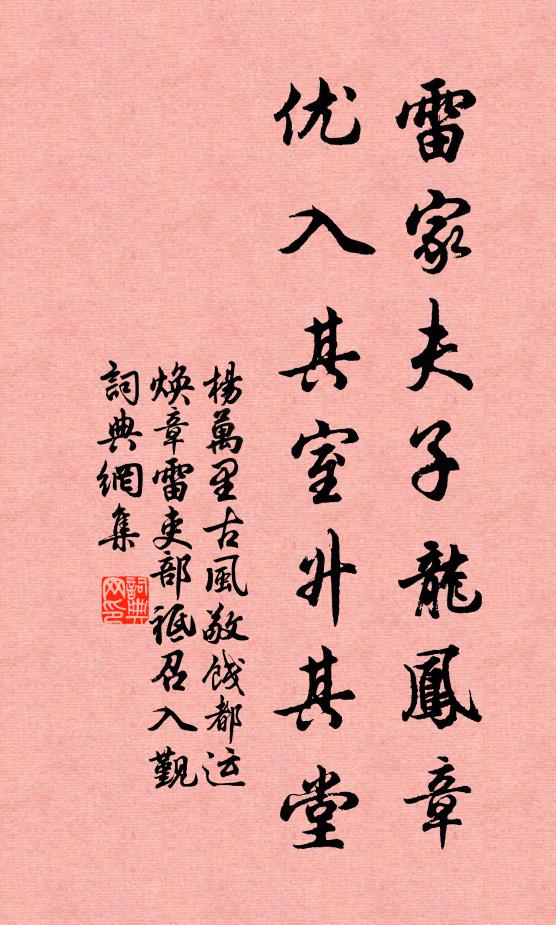 雷家夫子龍鳳章
优入其室升其堂
楊萬里古風敬餞都运
焕章雷吏部祗召入觐
詞典網集
詞典网印